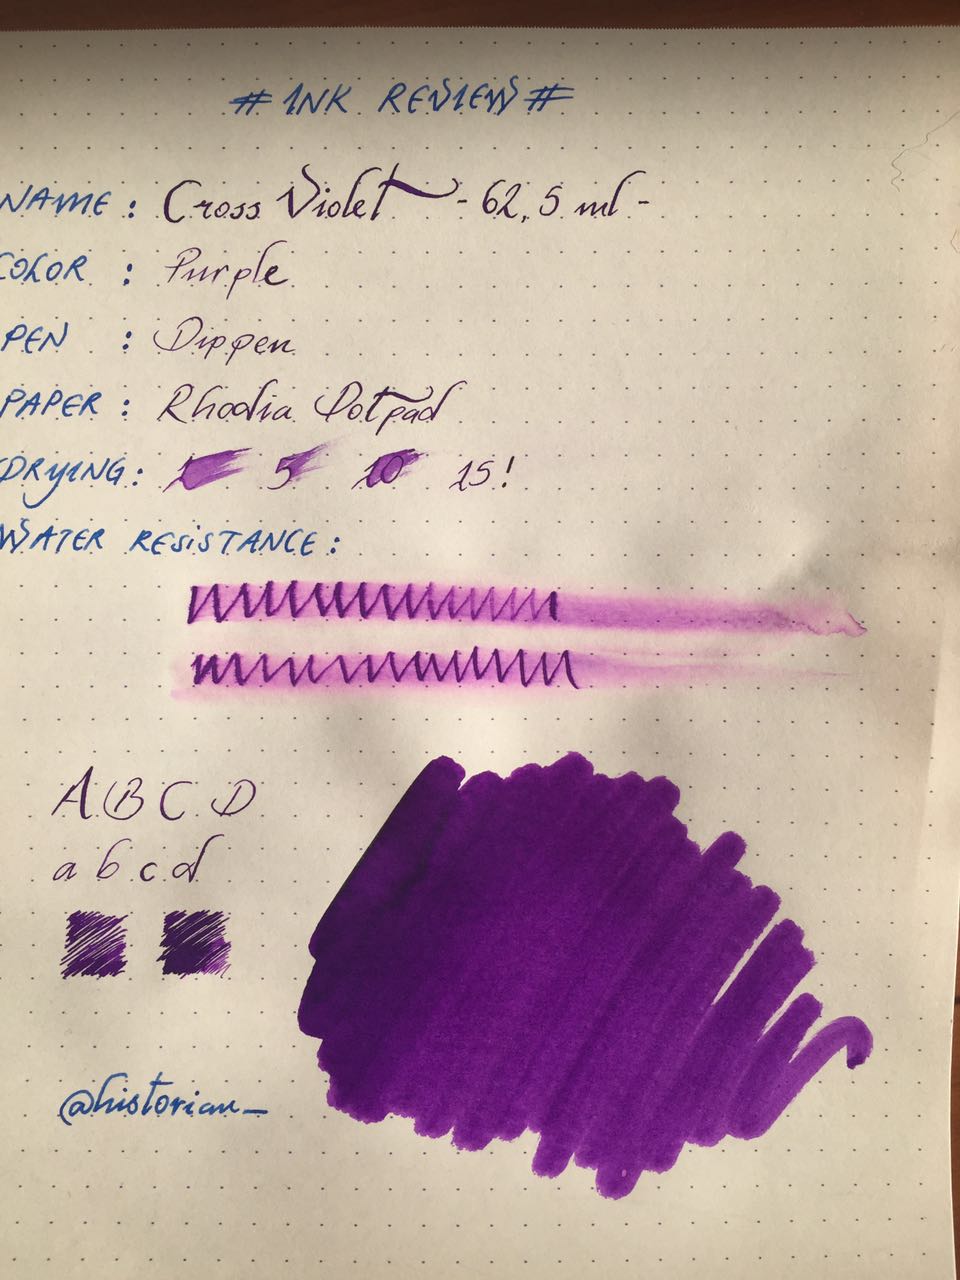 # INK REVIEW #
NAME : Cross Violet - 62,5 ml -
COLOR : Purple
PEN : Dippen
PAPER : Rhodia Dotpad
DRYING : 1 5 10 15!
WATER RESISTANCE :
A B C D
a b c d
@historian_